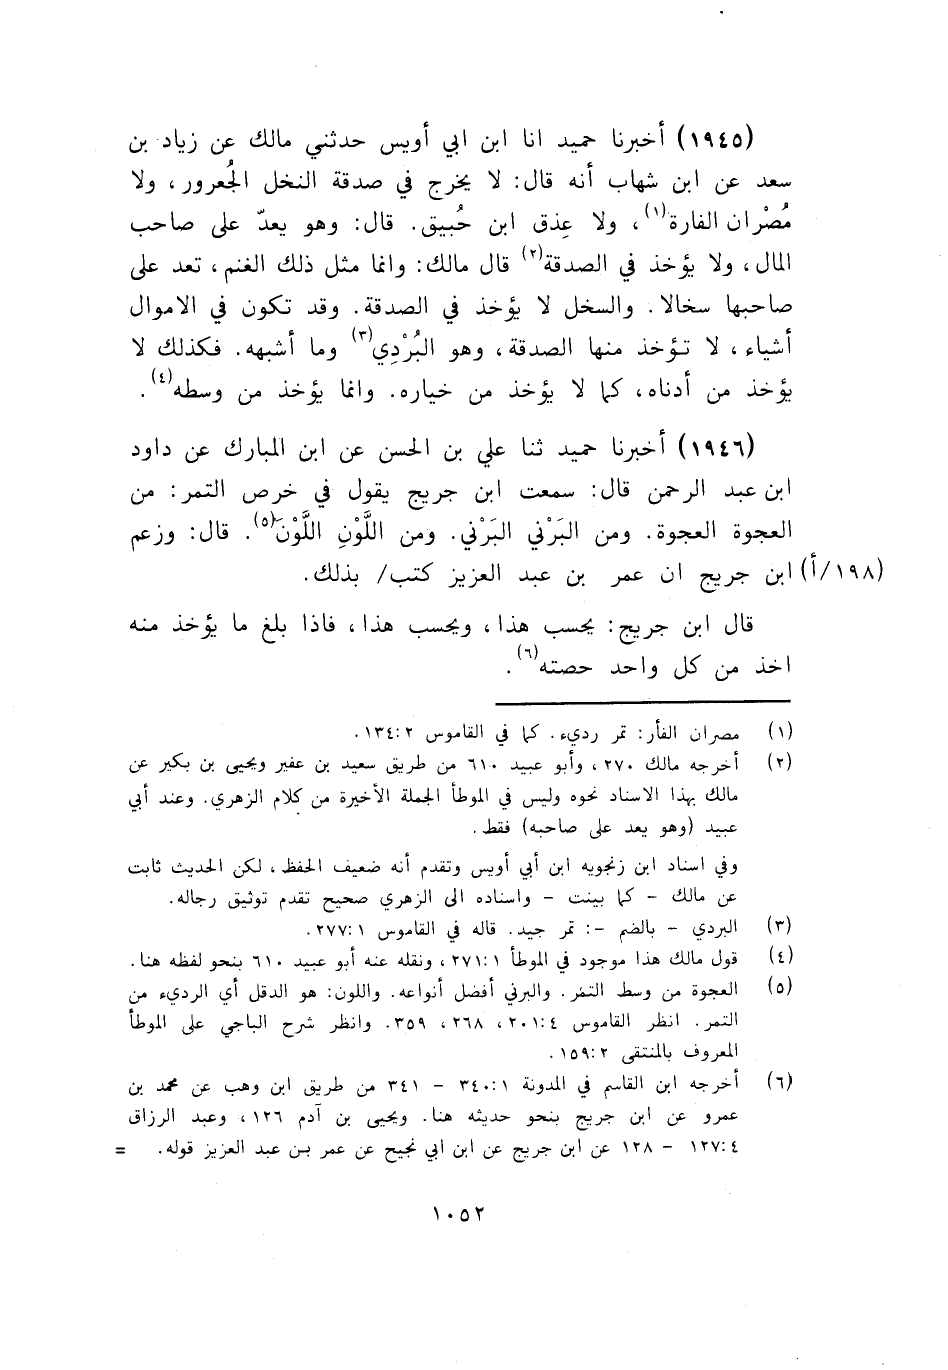 (١٩٤٥) أخبرنا حميد انا ابن ابي أويس حدثني مالك عن زياد بن
سعد عن ابن شهاب أنه قال: لا يخرج في صدقة النخل الجُعرور، ولا
مُصْران الفارة(١)، ولا عِذق ابن حُبيق. قال: وهو يعدّ على صاحب
المال، ولا يؤخذ في الصدقة(٢) قال مالك: وانما مثل ذلك الغنم، تعد على
صاحبها سخالا. والسخل لا يؤخذ في الصدقة. وقد تكون في الاموال
أشياء، لا تؤخذ منها الصدقة، وهو البُرْدِي(٣) وما أشبهه. فكذلك لا
يؤخذ من أدناه، كما لا يؤخذ من خياره. وانما يؤخذ من وسطه(٤).
(١٩٤٦) أخبرنا حميد ثنا علي بن الحسن عن ابن المبارك عن داود
ابن عبد الرحمن قال: سمعت ابن جريج يقول في خرص التمر: من
العجوة العجوة. ومن البَرْني البَرْني. ومن اللَّوْنِ اللَّوْنَ(٥). قال: وزعم
(١٩٨/أ) ابن جريج ان عمر بن عبد العزيز كتب/ بذلك.
قال ابن جريج: يحسب هذا، ويحسب هذا، فاذا بلغ ما يؤخذ منه
اخذ من كل واحد حصته(٦).
(١) مصران الفأر: تمر رديء. كما في القاموس ١٣٤:٢.
(٢) أخرجه مالك ٢٧٠، وأبو عبيد ٦١٠ من طريق سعيد بن عفير ويحيى بن بكير عن
مالك بهذا الاسناد نحوه وليس في الموطأ الجملة الأخيرة من كلام الزهري. وعند أبي
عبيد (وهو يعد على صاحبه) فقط.
وفي اسناد ابن زنجويه ابن أبي أويس وتقدم أنه ضعيف الحفظ، لكن الحديث ثابت
عن مالك - كما بينت - واسناده الى الزهري صحيح تقدم توثيق رجاله.
(٣) البردي - بالضم -: تمر جيد. قاله في القاموس ٢٧٧:١.
(٤) قول مالك هذا موجود في الموطأ ٢٧١:١، ونقله عنه أبو عبيد ٦١٠ بنحو لفظه هنا.
(٥) العجوة من وسط التمر. والبرني أفضل أنواعه. واللون: هو الدقل أي الرديء من
التمر. انظر القاموس ٢٠١:٤، ٢٦٨، ٣٥٩. وانظر شرح الباجي على الموطأ
المعروف بالمنتقى ١٥٩:٢.
(٦) أخرجه ابن القاسم في المدونة ٣٤٠:١ - ٣٤١ من طريق ابن وهب عن محمد بن
عمرو عن ابن جريج بنحو حديثه هنا. ويحيى بن آدم ١٢٦، وعبد الرزاق
١٢٧:٤ - ١٢٨ عن ابن جريج عن ابن ابي نجيح عن عمر بن عبد العزيز قوله. =
١٠٥٢